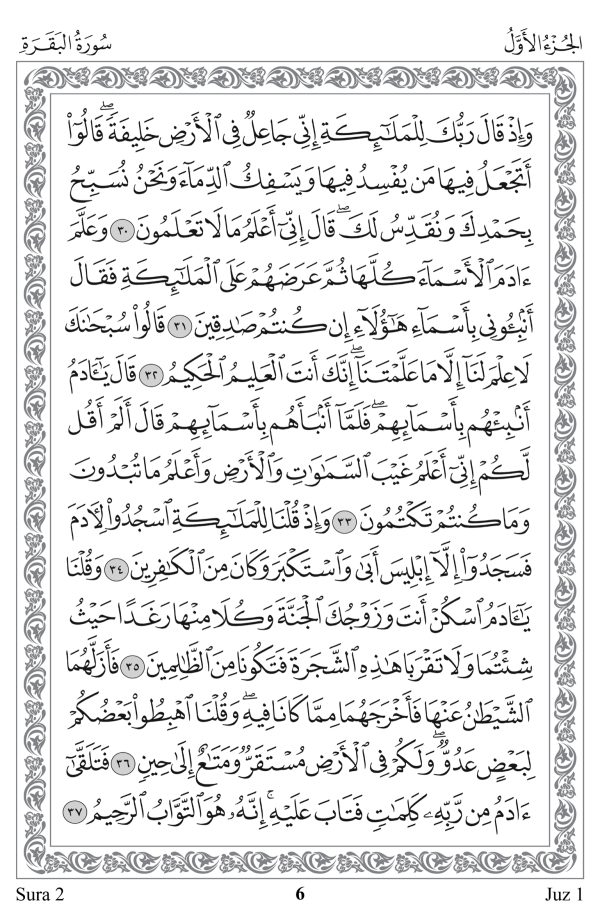 الجُزْءُ الأَوَّلُ سُورَةُ البَقَرَةِ
وَإِذْ قَالَ رَبُّكَ لِلْمَلَـٰٓئِكَةِ إِنِّى جَاعِلٌ فِى ٱلْأَرْضِ خَلِيفَةً ۖ قَالُوٓا۟
أَتَجْعَلُ فِيهَا مَن يُفْسِدُ فِيهَا وَيَسْفِكُ ٱلدِّمَآءَ وَنَحْنُ نُسَبِّحُ
بِحَمْدِكَ وَنُقَدِّسُ لَكَ ۖ قَالَ إِنِّىٓ أَعْلَمُ مَا لَا تَعْلَمُونَ ٣٠ وَعَلَّمَ
ءَادَمَ ٱلْأَسْمَآءَ كُلَّهَا ثُمَّ عَرَضَهُمْ عَلَى ٱلْمَلَـٰٓئِكَةِ فَقَالَ
أَنۢبِـُٔونِى بِأَسْمَآءِ هَـٰٓؤُلَآءِ إِن كُنتُمْ صَـٰدِقِينَ ٣١ قَالُوا۟ سُبْحَـٰنَكَ
لَا عِلْمَ لَنَآ إِلَّا مَا عَلَّمْتَنَآ ۖ إِنَّكَ أَنتَ ٱلْعَلِيمُ ٱلْحَكِيمُ ٣٢ قَالَ يَـٰٓـَٔادَمُ
أَنۢبِئْهُم بِأَسْمَآئِهِمْ ۖ فَلَمَّآ أَنۢبَأَهُم بِأَسْمَآئِهِمْ قَالَ أَلَمْ أَقُل
لَّكُمْ إِنِّىٓ أَعْلَمُ غَيْبَ ٱلسَّمَـٰوَٰتِ وَٱلْأَرْضِ وَأَعْلَمُ مَا تُبْدُونَ
وَمَا كُنتُمْ تَكْتُمُونَ ٣٣ وَإِذْ قُلْنَا لِلْمَلَـٰٓئِكَةِ ٱسْجُدُوا۟ لِـَٔادَمَ
فَسَجَدُوٓا۟ إِلَّآ إِبْلِيسَ أَبَىٰ وَٱسْتَكْبَرَ وَكَانَ مِنَ ٱلْكَـٰفِرِينَ ٣٤ وَقُلْنَا
يَـٰٓـَٔادَمُ ٱسْكُنْ أَنتَ وَزَوْجُكَ ٱلْجَنَّةَ وَكُلَا مِنْهَا رَغَدًا حَيْثُ
شِئْتُمَا وَلَا تَقْرَبَا هَـٰذِهِ ٱلشَّجَرَةَ فَتَكُونَا مِنَ ٱلظَّـٰلِمِينَ ٣٥ فَأَزَلَّهُمَا
ٱلشَّيْطَـٰنُ عَنْهَا فَأَخْرَجَهُمَا مِمَّا كَانَا فِيهِ ۖ وَقُلْنَا ٱهْبِطُوا۟ بَعْضُكُمْ
لِبَعْضٍ عَدُوٌّ ۖ وَلَكُمْ فِى ٱلْأَرْضِ مُسْتَقَرٌّ وَمَتَـٰعٌ إِلَىٰ حِينٍ ٣٦ فَتَلَقَّىٰٓ
ءَادَمُ مِن رَّبِّهِۦ كَلِمَـٰتٍ فَتَابَ عَلَيْهِ ۚ إِنَّهُۥ هُوَ ٱلتَّوَّابُ ٱلرَّحِيمُ ٣٧
Sura 2 6 Juz 1